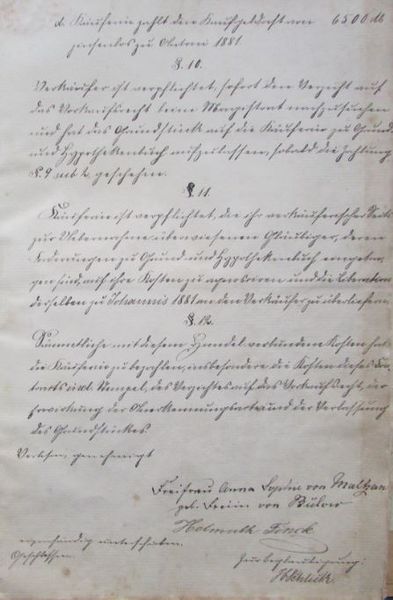 d. Käuferin zahlt den Kaufgeldrest von 6500 M
zinsenlos zu Ostern 1881.
§. 10.
Verkäufer ist verpflichtet, sofort den Verzicht auf
das Vorkaufsrecht beim Magistrat nachzusuchen
und hat das Grundstück auf die Käuferin zu Grund
und Hypothekenbuch aufzulassen, sobald die Zahlung
§. 9 sub 2. geschehen.
§. 11.
Käuferin ist verpflichtet, die ihr verkäuferischer Seits
zur Uebernahme überwiesenen Gläubiger, deren
Forderungen zu Grund und Hypothekenbuch eingetra
gen sind, auf ihre Kosten zu agnosciren und die Liberation
derselben zu Johannis 1881 an den Verkäufer zu überliefern.
§. 12.
Sämmtliche mit diesem Handel verbundene Kosten hat
die Käuferin zu bezahlen, insbesondere die Kosten dieses Con
tracts incl. Stempel, des Verzichtes auf das Vorkaufsrecht, der
Erwirkung der und der Verlassung
des Grundstückes.
Verlesen, genehmigt
Freifrau Anna Sophie von Maltzan
geb. Freiin von Bülow
Helmuth Finck
eigenhändig unterschrieben.
Geschlossen.
Zur Beglaubigung: